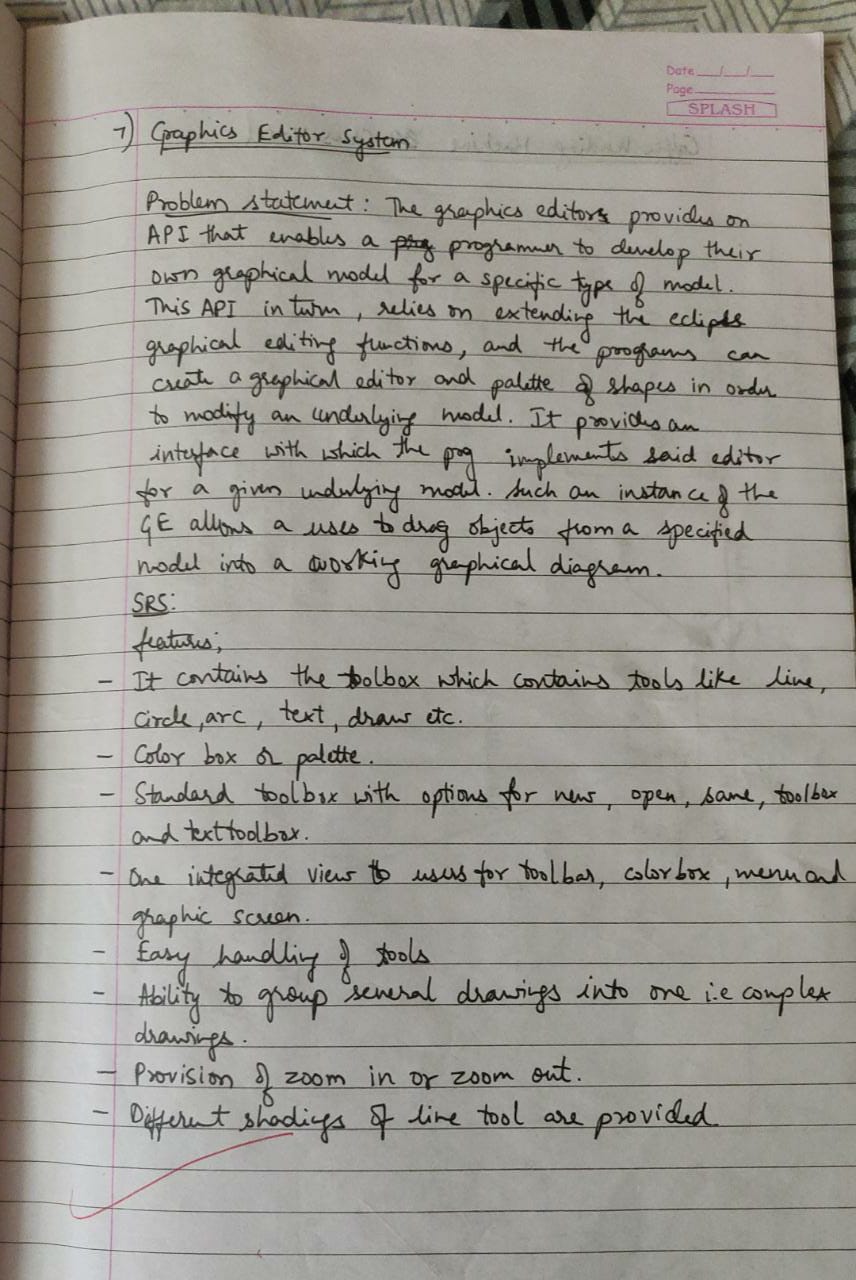 Date __/__/__
Page
SPLASH
7) Graphics Editor System
Problem statement : The graphics editors provides on
API that enables a prog programmer to develop their
own graphical model for a specific type of model.
This API in turn, relies on extending the eclipse
graphical editing functions, and the programs can
create a graphical editor and palette of shapes in order
to modify an underlying model. It provides an
interface with which the prog implements said editor
for a given underlying model. Such an instance of the
GE allows a uses to drag objects from a specified
model into a working graphical diagram.
SRS:
features;
- It contains the toolbox which contains tools like line,
circle, arc, text, draw etc.
- Color box or palette.
- Standard toolbox with options for new, open, save, toolbox
and text toolbox.
- One integrated view to users for toolbar, color box, menu and
graphic screen.
- Easy handling of tools
- Ability to group several drawings into one i.e complex
drawings.
- Provision of zoom in or zoom out.
- Different shadings of line tool are provided